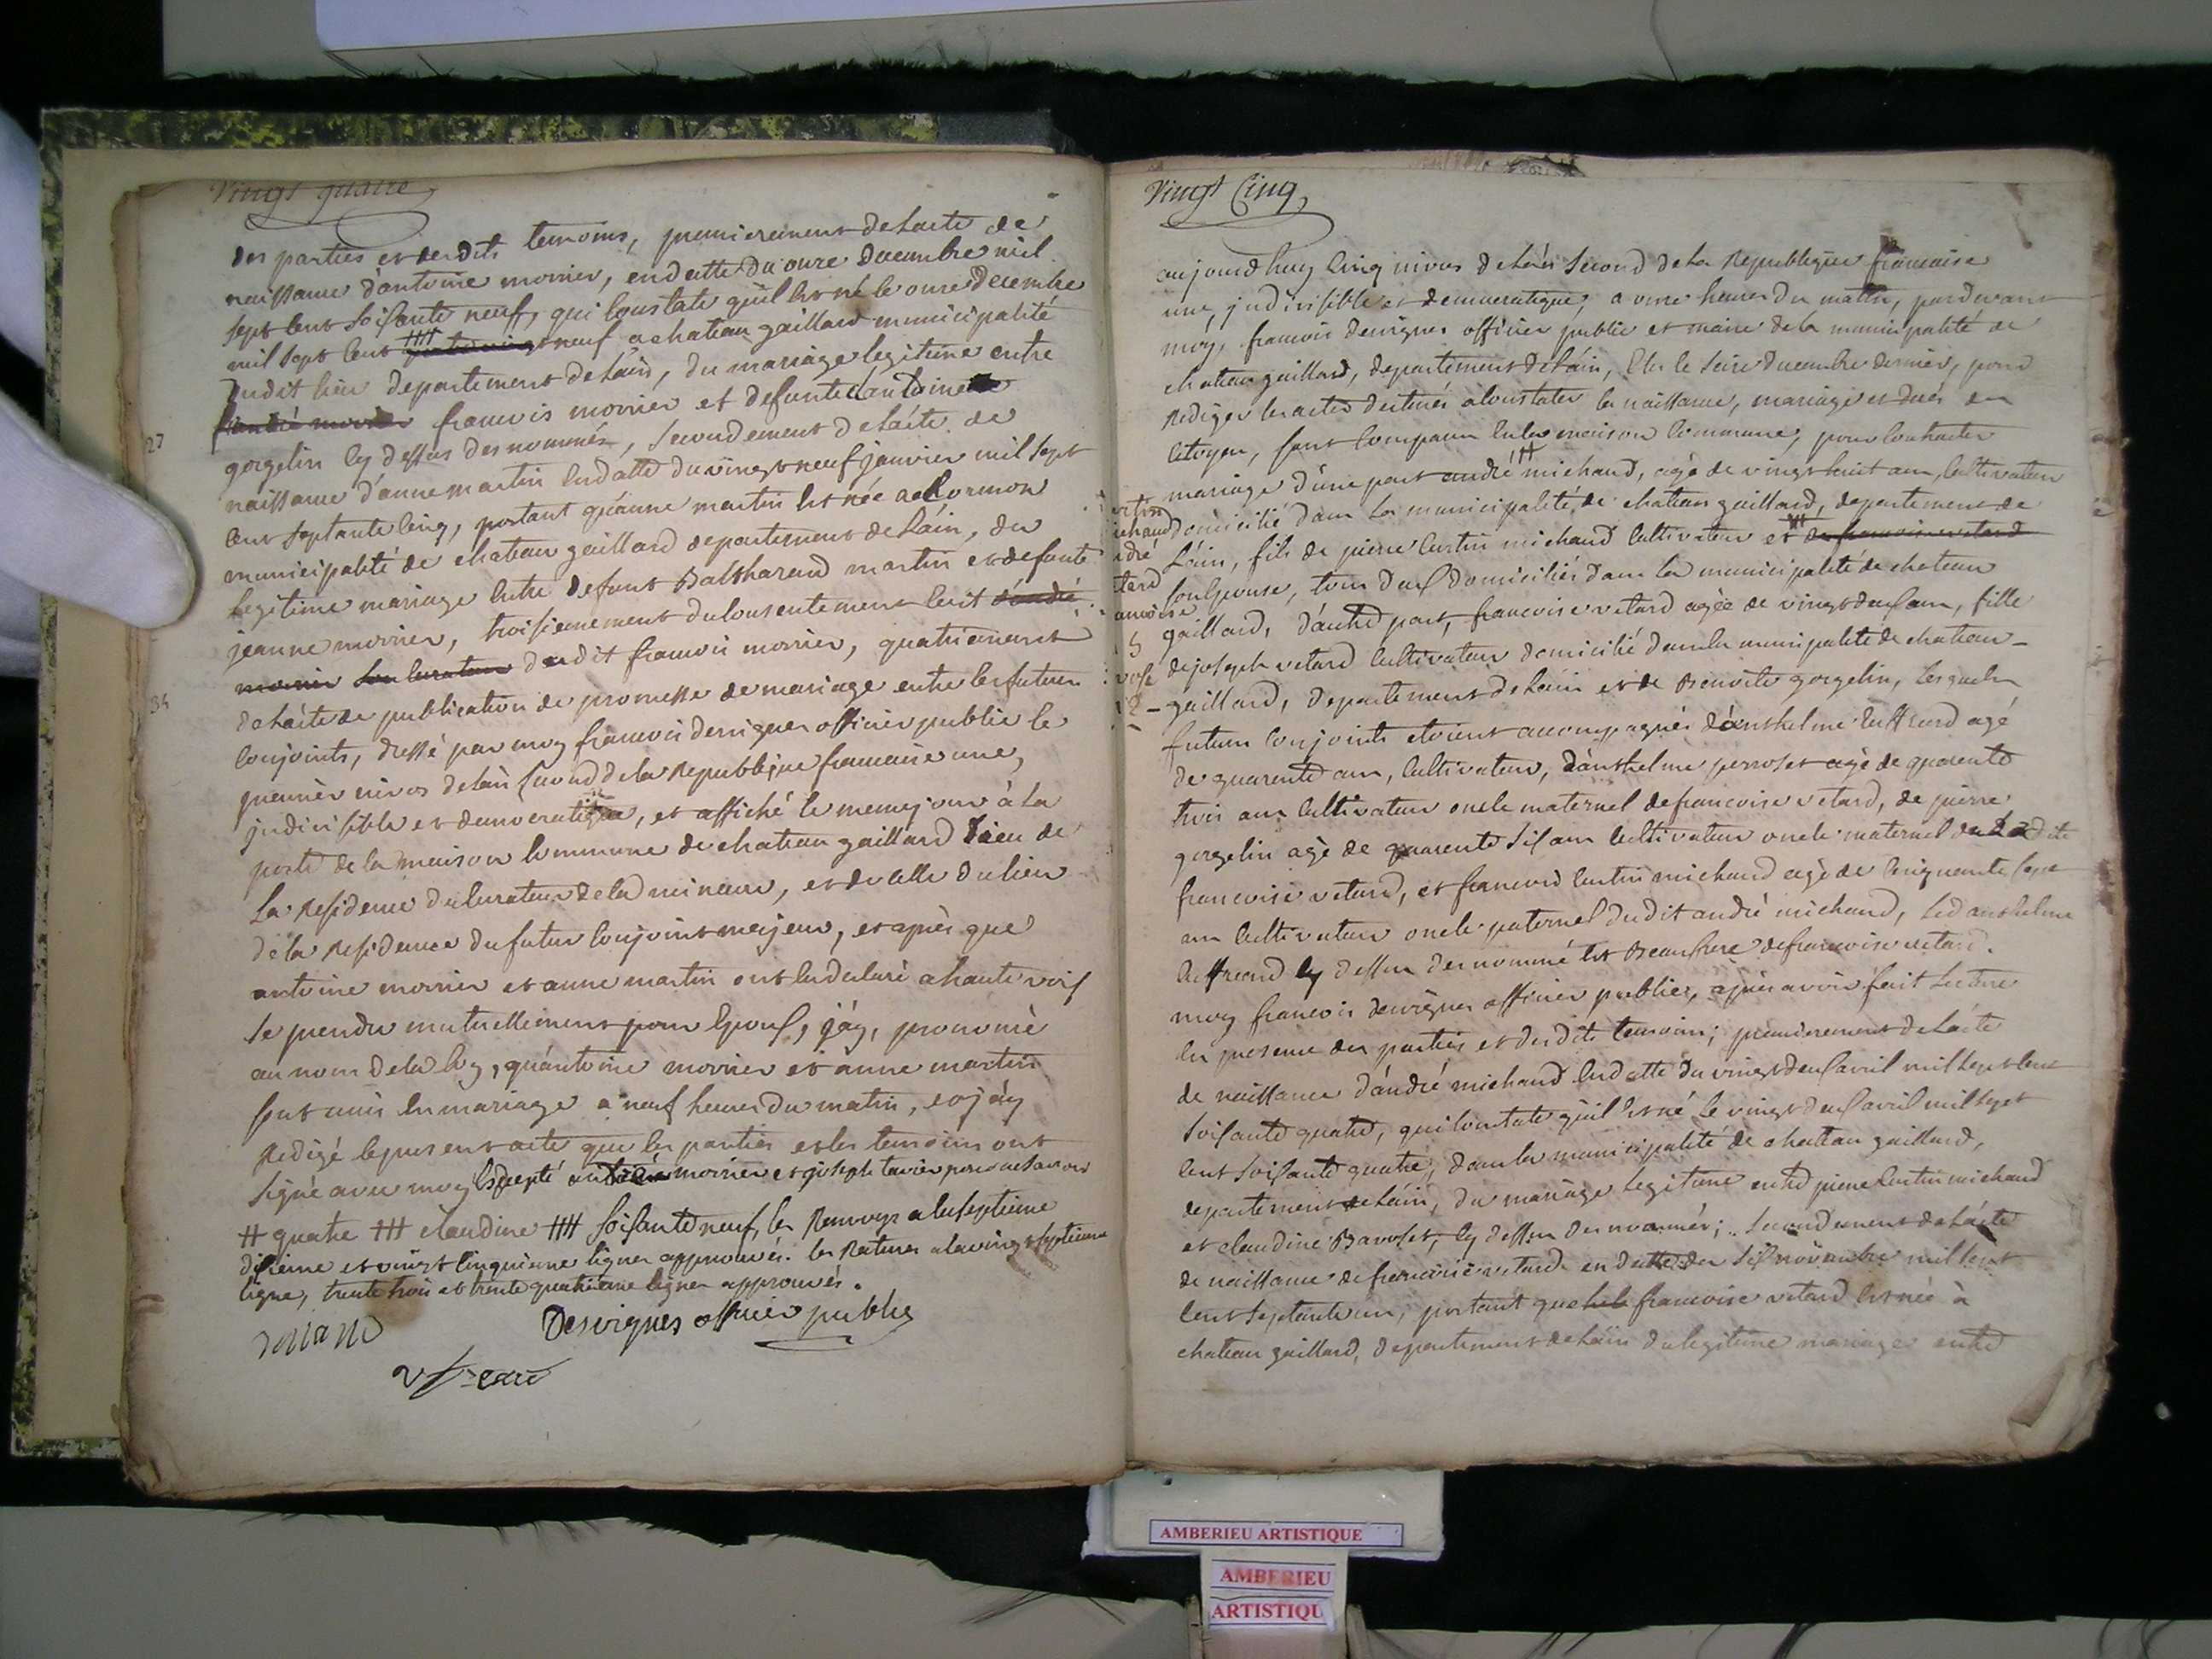 Vingt quatre
des parties et desdits temoins, premierement de lacte de
naissance d'antoine morrier, en datte du onze decembre mil
sept cent soisante neuf, qui constate qu'il est né le onze decembre
mil sept cent quatrevingt neuf a chateau gaillard municipalité
dudit lieu departement de l'ain, du mariage legitime entre
francois morrier et defunte antoinette
27
gorgelin cy dessus denommés, secondement de l'acte de
naissance d'anne martin en datte du vingt neuf janvier mil sept
cent septante cinq, portant qu'anne martin est née a cormon
municipalité de chateau gaillard departement de l'ain, du
legitime mariage entre defunt Balthazard martin et defunte
jeanne morrier, troisiemement du consentement ecrit d'andré
34
morrier son curateur dudit francois morrier, quatriemement
de l'acte de publication de promesse de mariage entre les futurs
conjoints, dressé par moy francois desvignes officier public le
premier nivos de l'an second de la Republique francaise une,
indivisible et democratique, et affiché le meme jour à la
porte de la maison commune de chateau gaillard lieu de
la Residence du curateur de la mineure, et de celle du lieu
de la Residence du futur conjoint majeur, et après que
antoine morrier et anne martin ont eu declaré a haute voix
se prendre mutuellement pour epoux, j'ay, prononcé
au nom de la loy, qu'antoine morrier et anne martin
sont unis en mariage a neuf heures du matin, et j'ay
Redigé le present acte que les parties et les temoins ont
signé avec moy excepté morrier et joseph tavier pour ne savoir
quatre claudine soisante neuf, les Renvoys a la septieme
dixieme et vingt cinquieme lignes approuvés. les Ratures a la vingt septieme
ligne, trente trois et trente quatrieme lignes approuvés.
Desvignes officier public
Vingt Cinq,
aujourdhuy cinq nivos de l'an second de la Republique francaise
une, indivisible et democratique, a onze heures du matin, pardevant
moy, francois desvignes officier public et maire de la municipalité de
chateau gaillard, departement de l'ain, elu le seize decembre dernier, pour
Rediger les actes destinés a constater les naissance, mariage et decés des
citoyen, sont comparus en la maison commune, pour contracter
mariage d'une part andré michaud, agé de vingt huit ans, cultivateur
domicilié dans la municipalité de chateau gaillard, departement de
l'ain, fils de pierre curtin michaud cultivateur et de francoise vetard
son epouse, tous deux domiciliés dans la municipalité de chateau
gaillard, d'autre part, francoise vetard agée de vingt deux ans, fille
de joseph vetard cultivateur domicilié dans la municipalité de chateau
gaillard, departement de l'ain et de Benoite gorgelin, lesquels
futurs conjoints etoient accompagnés d'anthelme agé
de quarente ans, cultivateur, d'anthelme perroset agé de quarente
trois ans cultivateur oncle maternel de francoise vetard, de pierre
gorgelin agé de quarente six ans cultivateur oncle maternel de ladite
francoise vetard, et francois curtin michaud agé de cinquante sept
ans cultivateur oncle paternel dudit andré michaud, led anthelme
cy dessus denommé est Beaufrere de francoise vetard.
moy francois desvignes officier public, après avoir fait lecture
en presence des parties et desdits temoins; premierement de l'acte
de naissance d'andré michaud en datte du vingt deux avril mil sept cent
soisante quatre, qui constate qu'il est né le vingt deux avril mil sept
cent soisante quatre, dans la municipalité de chateau gaillard,
departement de l'ain, du mariage legitime entre pierre curtin michaud
et claudine Bavoset, cy dessus denommés; secondement de l'acte
de naissance de francoise vetard en datte du six novembre mil sept
cent septante un, portant que francoise vetard est née à
chateau gaillard, departement de l'ain du legitime mariage entre
AMBERIEU ARTISTIQUE
AMBERIEU
ARTISTIQU